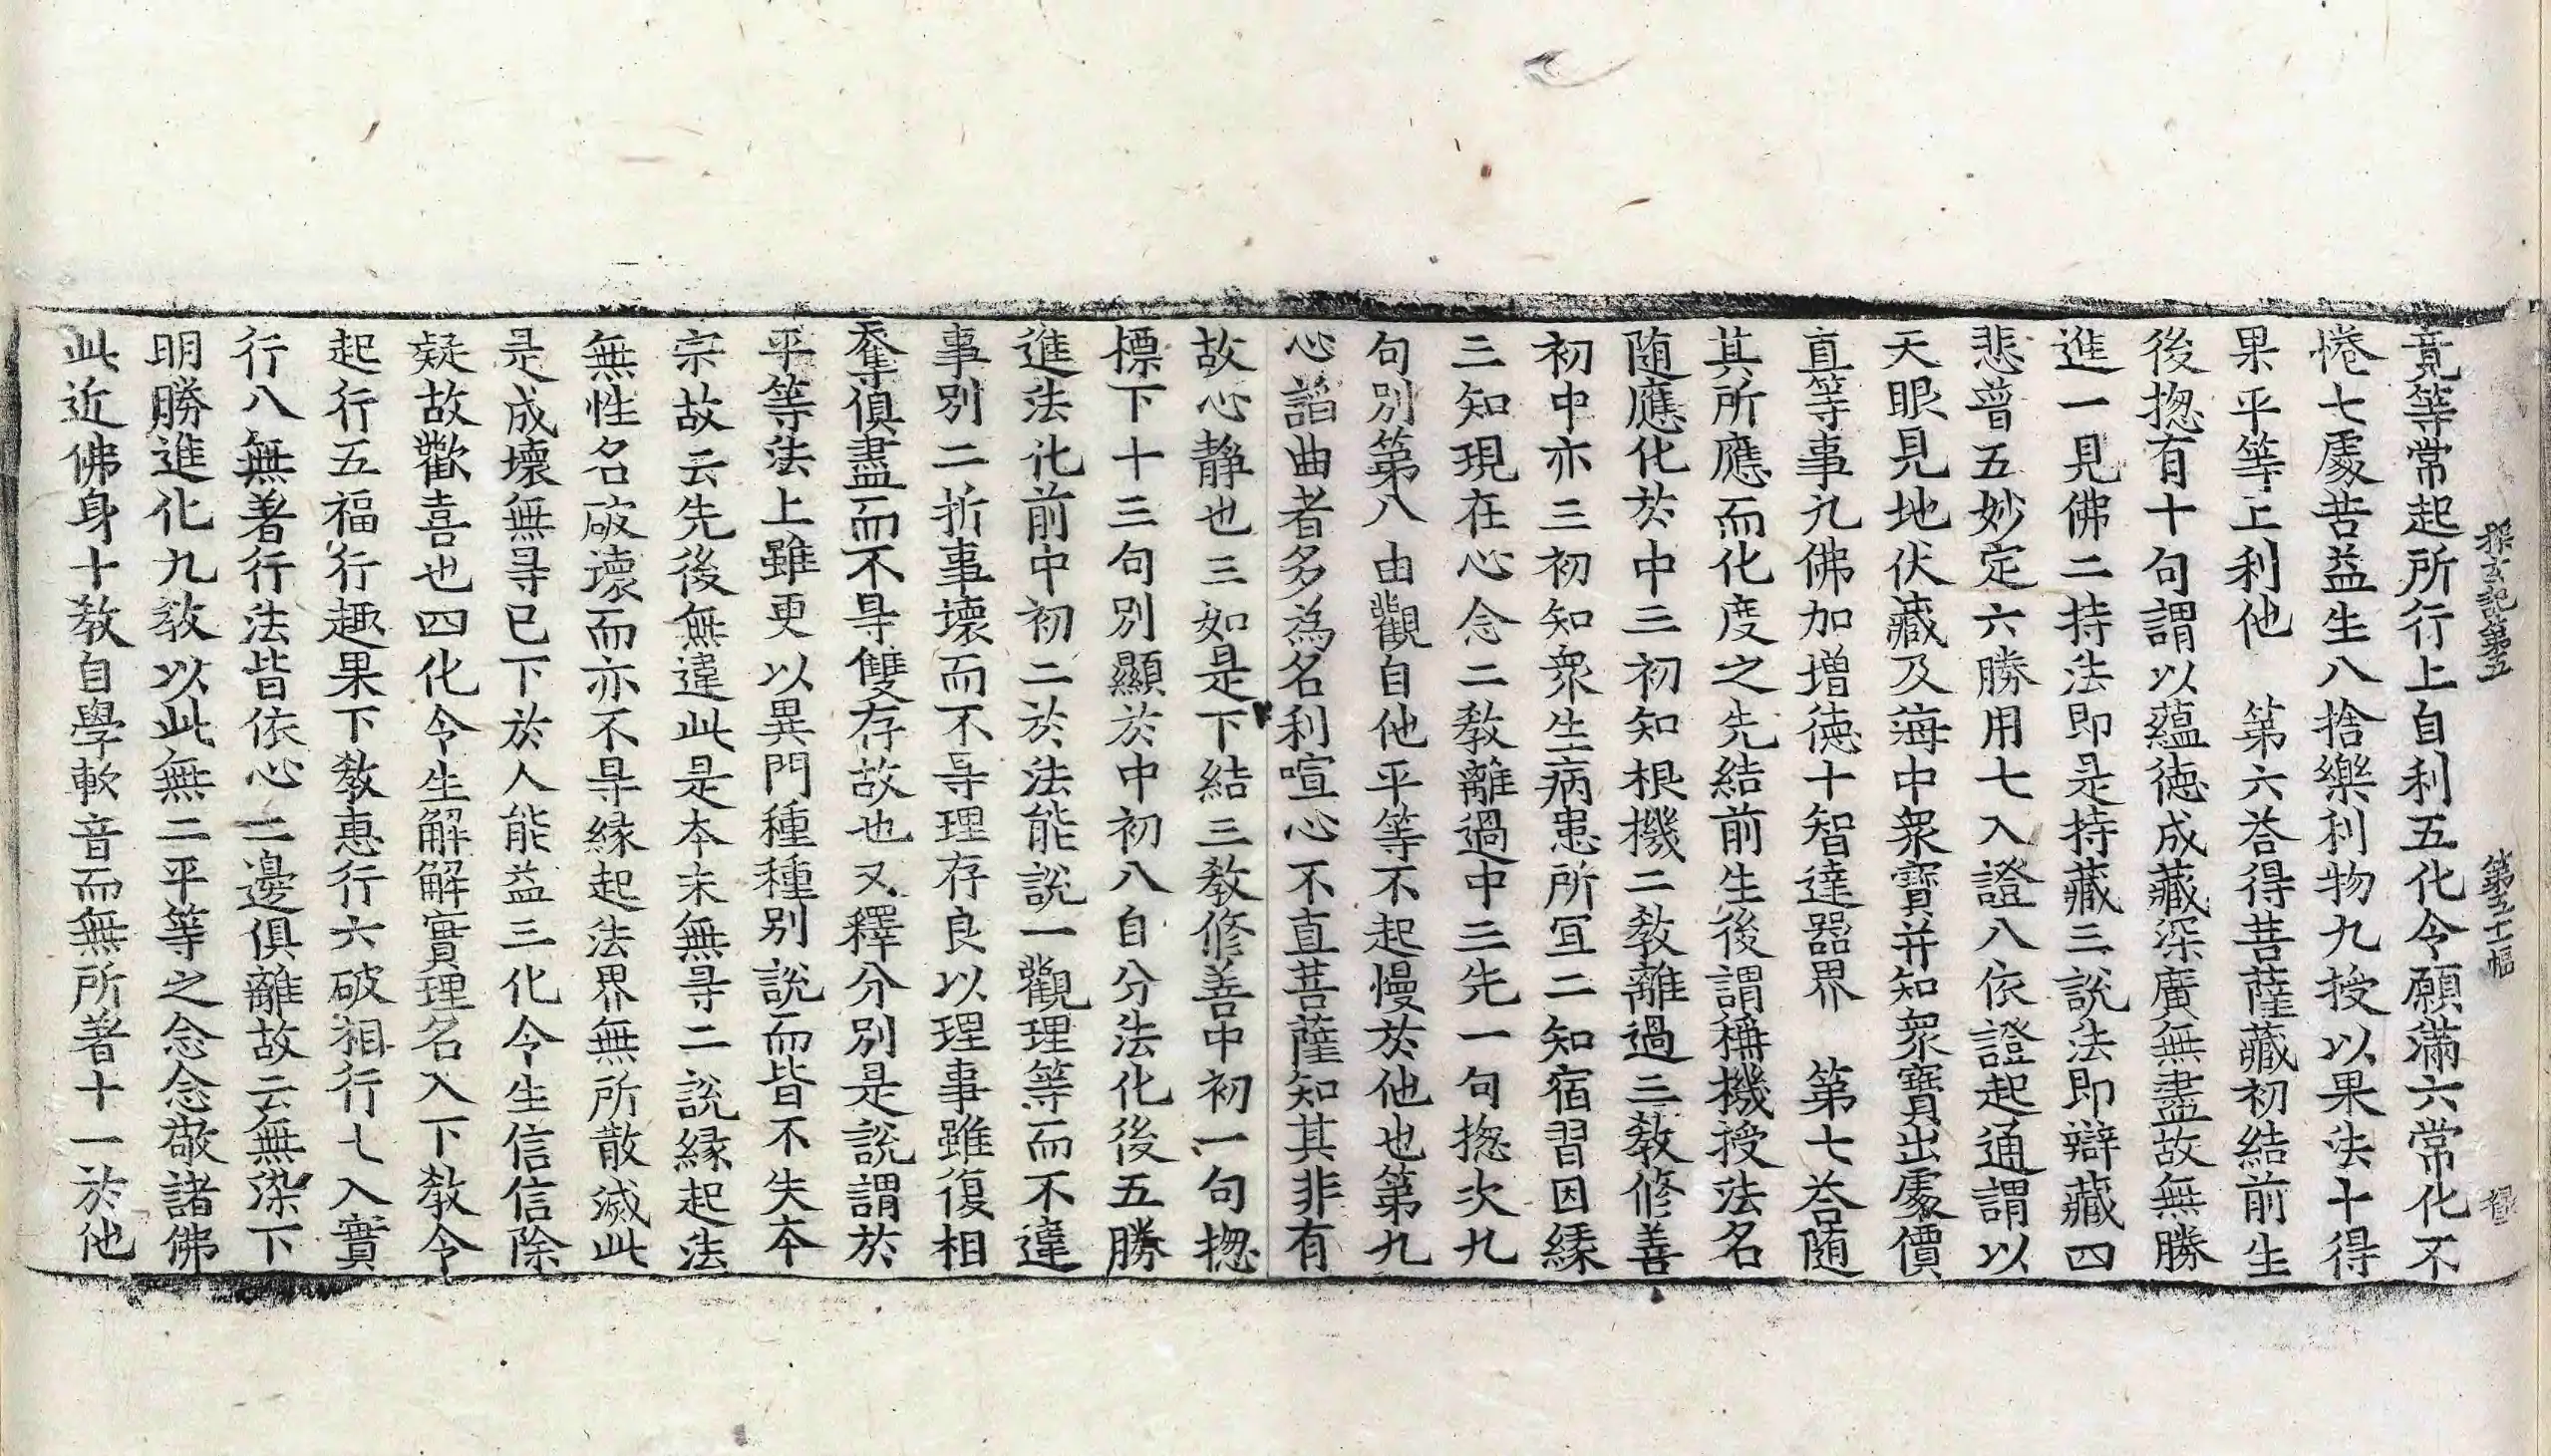 探玄記第五 第五十一幅
竟等常起所行上自利五化令願滿六常化不
惓七處苦益生八捨樂利物九授以果法十得
果平等上利他 第六荅得菩薩藏初結前生
後揔有十句謂以蘊德成藏深廣無盡故無勝
進一見佛二持法即是持藏三說法即辯藏四
悲普五妙定六勝用七入證八依證起通謂以
天眼見地伏藏及海中衆寶并知衆寶出處價
直等事九佛加增徳十智達器界 第七荅随
其所應而化度之先結前生後謂稱機授法名
随應化於中三初知根機二敎離過三敎修善
初中亦三初知衆生病患所冝二知宿習因縁
三知現在心念二敎離過中三先一句揔次九
句別第八由觀自他平等不起慢於他也第九
心諂曲者多為名利喧心不直菩薩知其非有
故心静也三如是下結三敎修善中初一句揔
標下十三句別顯於中初八自分法化後五勝
進法化前中初二於法能說一觀理等而不違
事別二折事壞而不㝵理存良以理事雖復相
奪傾盡而不㝵雙存故也又釋分別是說謂於
平等法上雖更以異門種種別說而皆不失夲
宗故云先後無違此是夲末無㝵二說縁起法
無性名破壞而亦不㝵緣起法界無所散滅此
是成壞無㝵已下於人能益三化令生信信除
疑故歡喜也四化令生解解實理名入下敎令
起行五福行趣果下敎恵行六破相行七入實
行八無著行法皆依心二邊俱離故云無染下
明勝進化九敎以此無二平等之念念敬諸佛
此近佛身十敎自學軟音而無所著十一於他